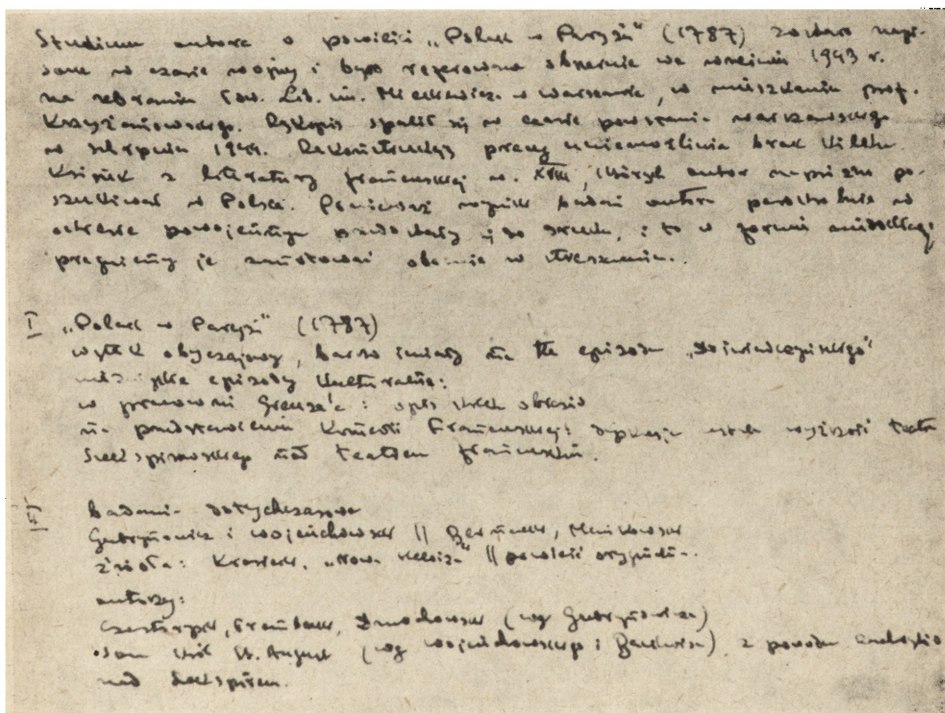 Studium autora o powieści „Polak w Paryżu" (1787) zostało napi-
sane w czasie wojny i było referowane obszernie we wrześniu 1943 r.
na zebraniu Tow. Lit. im. Mickiewicza w Warszawie, w mieszkaniu prof.
Krzyżanowskiego. Rękopis spalił się w czasie powstania warszawskiego
w sierpniu 1944. Rekonstrukcję pracy uniemożliwia brak kilku
książek z literatury francuskiej w. XVIII, których autor napróżno po-
szukiwał w Polsce. Ponieważ wyniki badań autora parokrotnie w
okresie powojennym przedostały się do druku, i to w formie
pragniemy je zanotować obecnie w streszczeniu.
I „Polak w Paryżu" (1787)
wątek obyczajowy, bardzo śmiały na tle epizodu „Doświadczyńskiego"
epizody kulturalne:
w pracowni Greuze'a: opis trzech obrazów
na przedstawieniu Komedii Francuskiej: dyskusja wyższości teatru
Szekspirowskiego nad teatrem francuskim.
II badania dotychczasowe
Gubrynowicz i Wojciechowski || Bernacki,
źródła: Krasicki, „Nowa Heloiza" || powieść oryginalna.
autorzy:
Czartoryski, Dmochowski (wg Gubrynowicza)
sam król St. August (wg Wojciechowskiego i Bernackiego), z powodu
nad Szekspirem.